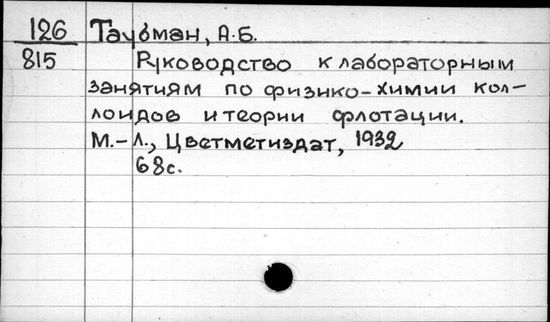 126 Таубман, А.Б.
815 Руководство к лабораторным
занятиям по физико-химии кол-
лоидов и теории флотации.
М.-Л., Цветметиздат, 1932
68с.